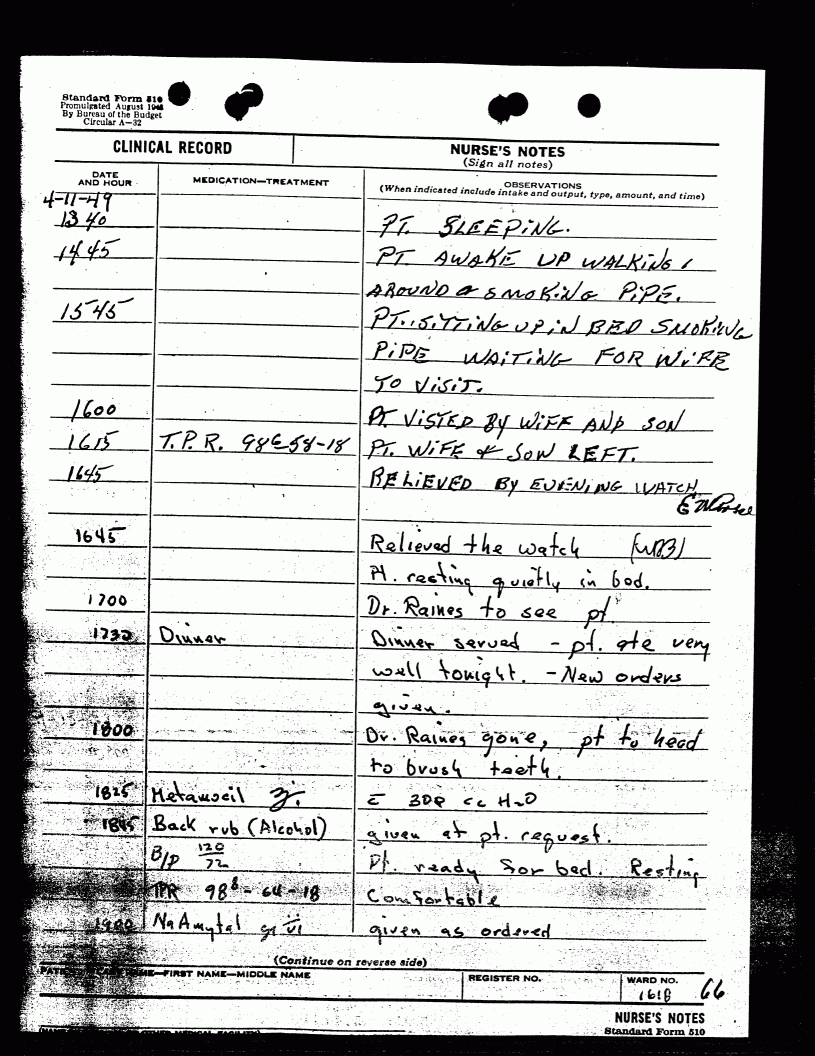 Standard Form 510
Promulgated August 1948
By Bureau of the Budget
Circular A—32
CLINICAL RECORD
NURSE'S NOTES
(Sign all notes)
DATE AND HOUR
MEDICATION—TREATMENT
OBSERVATIONS
(When indicated include intake and output, type, amount, and time)
4-11-49
1340 PT. SLEEPING.
1445 PT AWAKE UP WALKING
AROUND & SMOKING PIPE.
1545 PT. SITTING UP IN BED SMOKING
PIPE WAITING FOR WIFE
TO VISIT.
1600 PT VISTED BY WIFE AND SON
1615 T.P.R. 986-58-18 PT. WIFE & SON LEFT.
1645 RELIEVED BY EVENING WATCH
1645 Relieved the watch
Pt. resting quietly in bed.
1700 Dr. Raines to see pt
1730 Dinner Dinner served - pt. ate very
well tonight. - New orders
given.
1800 Dr. Raines gone, pt to head
to brush teeth.
1825 Metamucil c̄ 300 cc H2O
1845 Back rub (Alcohol) given at pt. request.
B/P 120/72 Pt. ready for bed. Resting
TPR 98⁸ - 64 - 18 Comfortable
1900 Na Amytal gr vi given as ordered
(Continue on reverse side)
NAME—FIRST NAME—MIDDLE NAME
REGISTER NO.
WARD NO.
161B 66
NURSE'S NOTES
Standard Form 510